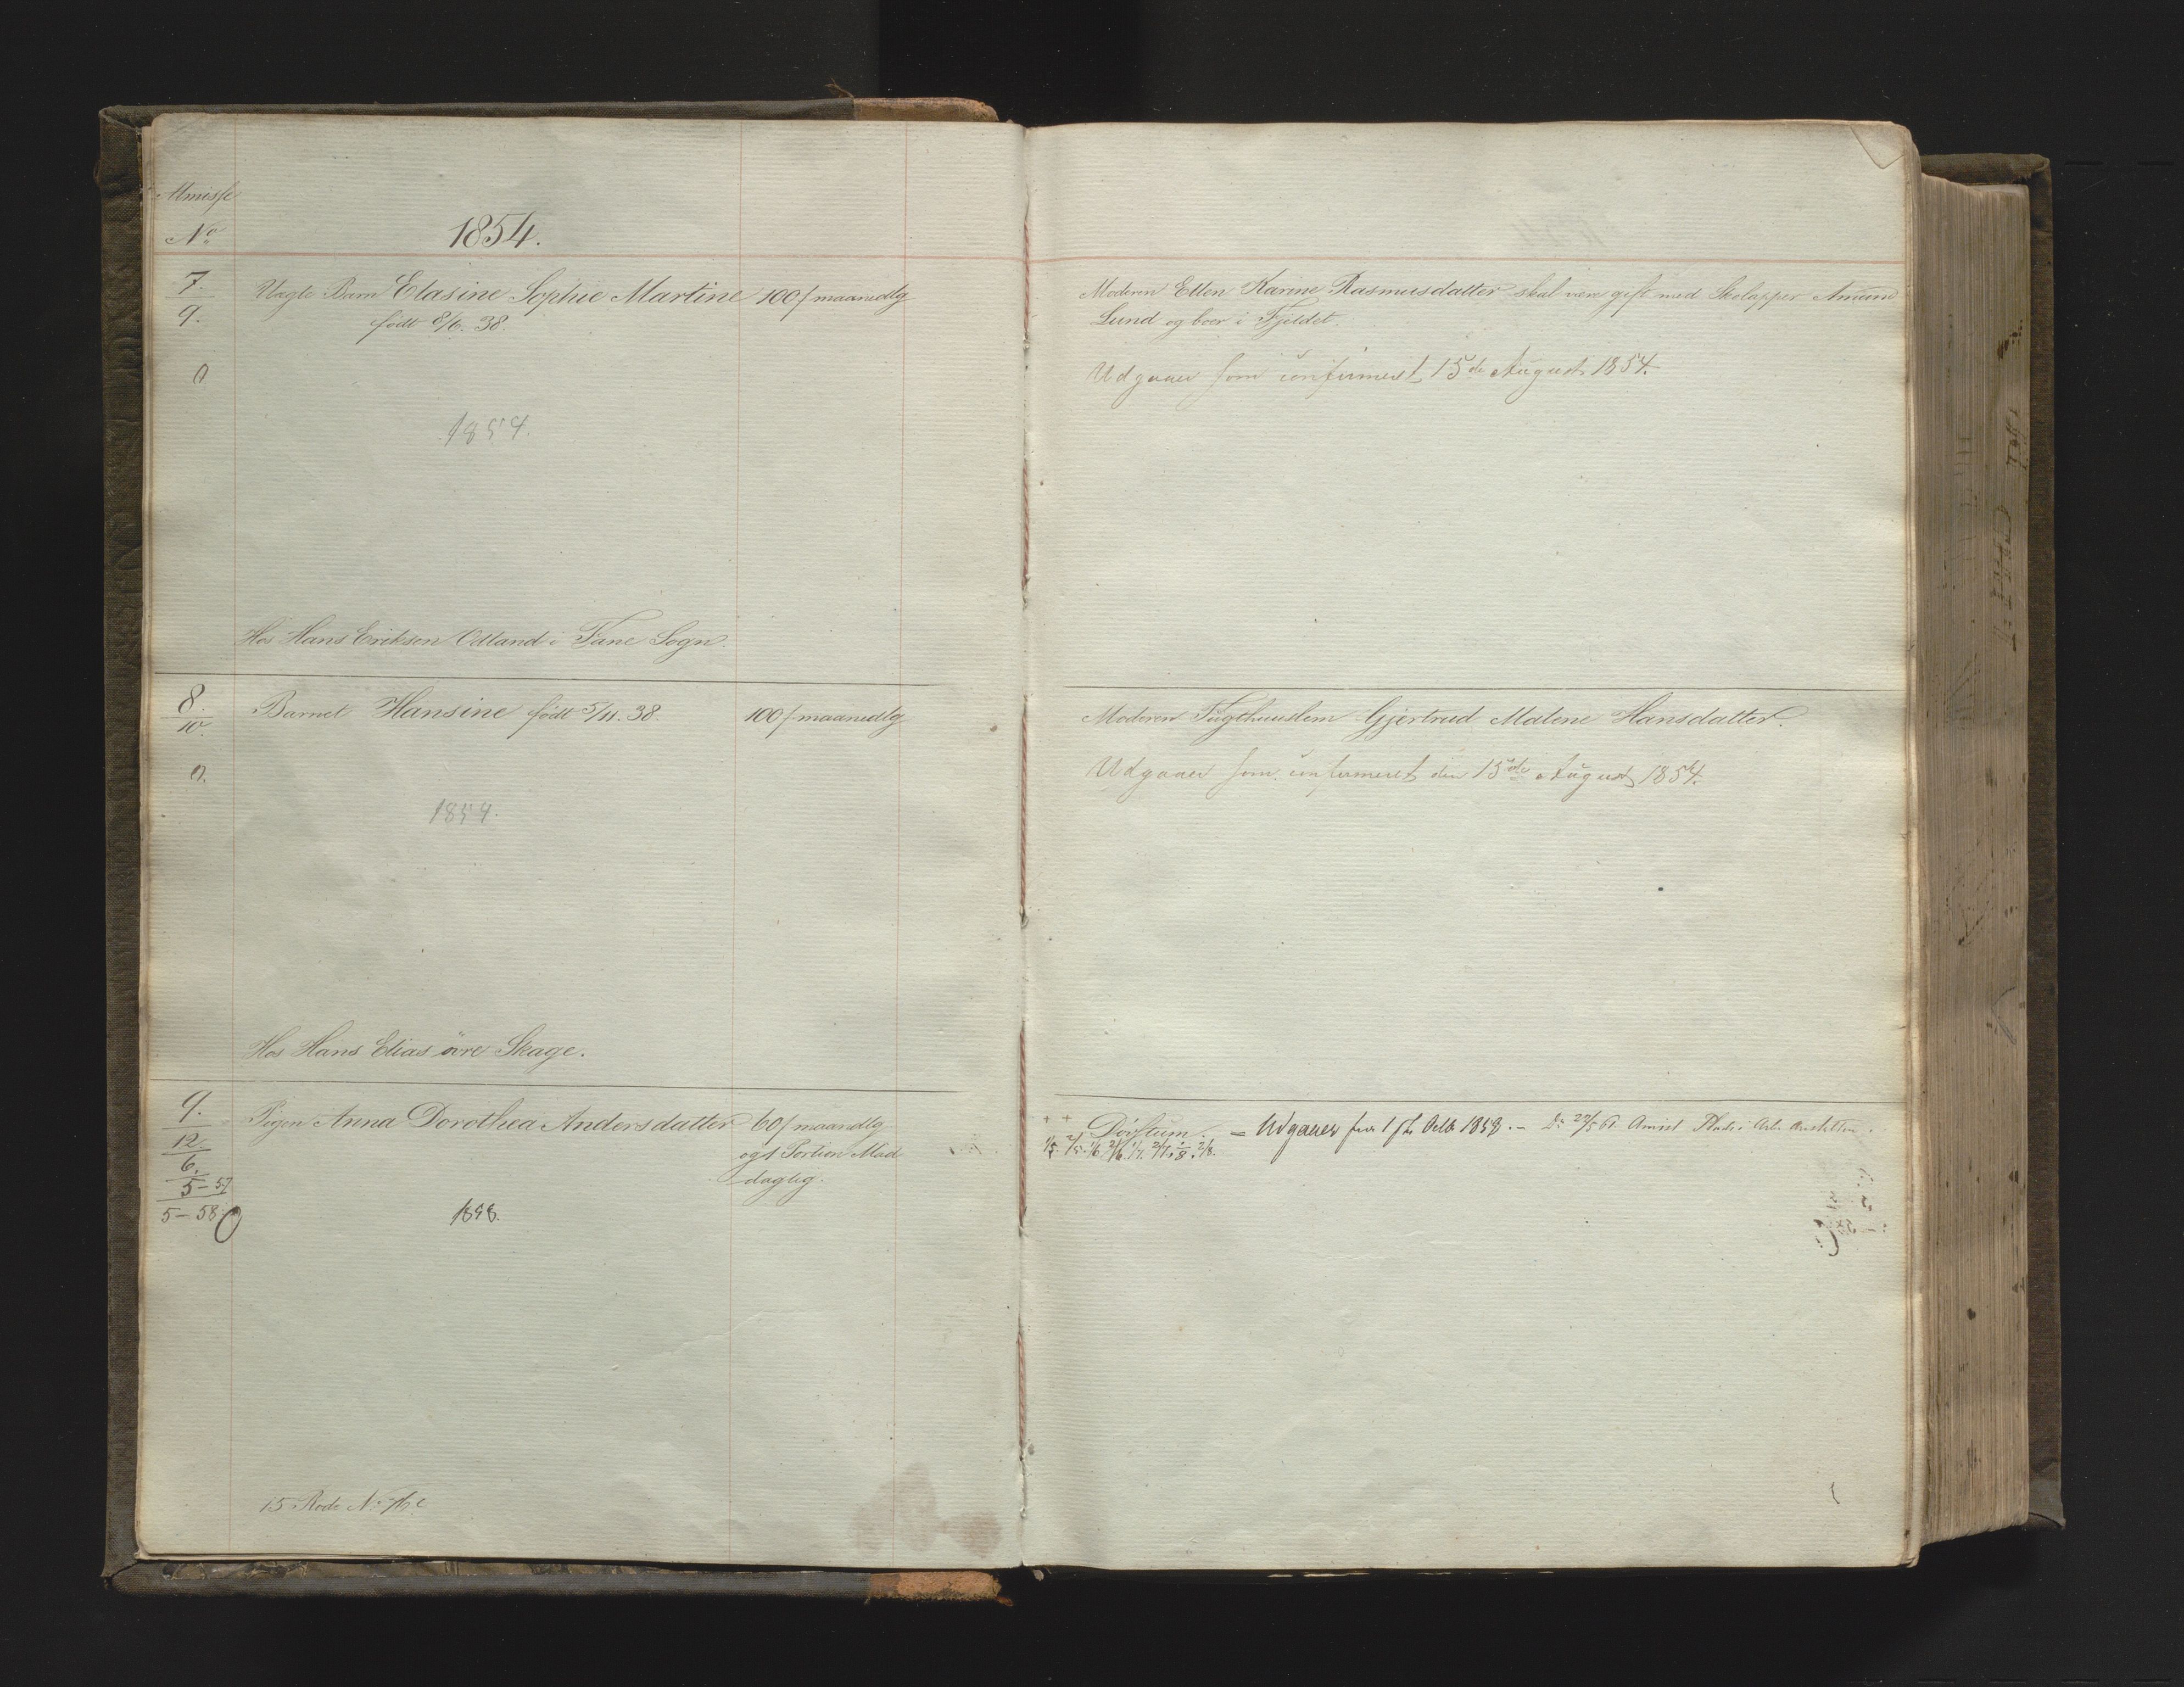 Almisse
No
1854.
7.
9.
0
Uægte Barn Elasine Sophie Martine 100ſ maanedlg
født 8/6. 38.
1854.
Hos Hans Eriksen Odland i Fane Sogn.
8.
10.
0.
Barnet Hansine født 5/11. 38. 100ſ maanedlg
1854.
Hos Hans Elias övre Skage.
9.
12
6.
5-57
5-58
0
Pigen Anna Dorothea Andersdatter 60ſ maanedlg
og 1 Portion Mad
daglig.
1858.
15 Rode No 76
Moderen Ellen Karine Rasmusdatter skal være gift med Skolapper Amund
Lund og boer i Fjeldet.
Udgaaer som confirmeret 15de August 1854.
Moderen Tugthuuslem Gjertrud Malene Hansdatter.
Udgaaer som confirmeret den 15de August 1854.
Døvstum. = Udgaaer fra 1ste Octb 1858. - 22/5 61